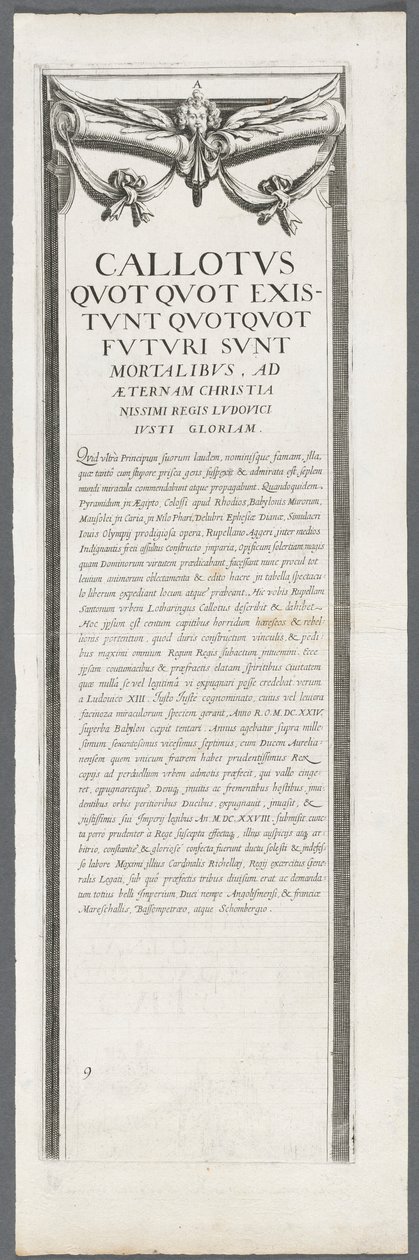 A
CALLOTVS
QVOT QVOT EXIS-
TVNT QVOTQVOT
FVTVRI SVNT
MORTALIBVS, AD
ÆTERNAM CHRISTIA
NISSIMI REGIS LVDOVICI
IVSTI GLORIAM.
Qvid vltrà Principum suorum laudem, nominisque famam, illa,
quæ tantó cum stupore prisca gens suspexit & admirata est, septem
mundi miracula commendabunt atque propagabunt. Quandoquidem
Pyramidum jn Ægipto, Colossi apud Rhodios, Babylonis Murorum,
Mausolei, jn Caria, jn Nilo Phari, Delubri Ephesiæ Dianæ, Simulacri
Iouis Olympij prodigiosa opera, Rupellano Aggeri jnter medios
Indignantis freti assultus constructo jmparia, opificum solertiam magis
quam Dominorum virtutem prædicabant, facessant nunc procul tot
leuium animorum oblectamenta & edito hacre jn tabella spectacu-
lo liberum expediant locum atque præbeant. Hic vobis Rupellam
Santonum vrbem Lotharingus Callotus describit & exhibet
Hoc jpsum est centum capitibus horridum hæreseos & rebel-
lionis portentum, quod duris constructum vinculis, & pedi-
bus maximi omnium Regum Regis subactum jntuemini. Ecce
jpsam contumacibus & præfractis elatam spiritibus Ciuitatem
quæ nullâ se vel legitimâ vi expugnari posse credebat verum
a Ludovico XIII. Justo Justè cognominato, cuius vel leuiora
facinora miraculorum speciem gerant, Anno R.O.M.DC.XXIV.
superba Babylon capit tentari. Annus agebatur supra mille-
simum sexcentesimus vicesimus septimus, cum Ducem Aurelia-
nensem quem vnicum fratrem habet prudentissimus Rex
copijs ad perduellum vrbem admotis præfecit, qui vallo cinge-
ret, opugnaretque. Deniq, jnuitis ac frementibus hostibus, jnui-
dentibus orbis peritioribus Ducibus, expugnauit, jnuasit, &
justissimis sui Jmperij legibus An. M.DC.XXVIII. submisit. cunc-
ta porro prudenter à Rege suscepta effectaq, illius auspicijs atq ar-
bitrio, constantiè & gloriosè confecta fuerunt ductu solesti & indefes-
so labore Maximi illius Cardinalis Richeliæi, Regij exercitus Gene-
ralis Legati, sub quo præfectis tribus diuisum erat ac demanda-
tum totius belli Jmperium, Duci nempe Angolismensi, & franciæ
Mareschallis, Bassompetræo, atque Schombergio.
9